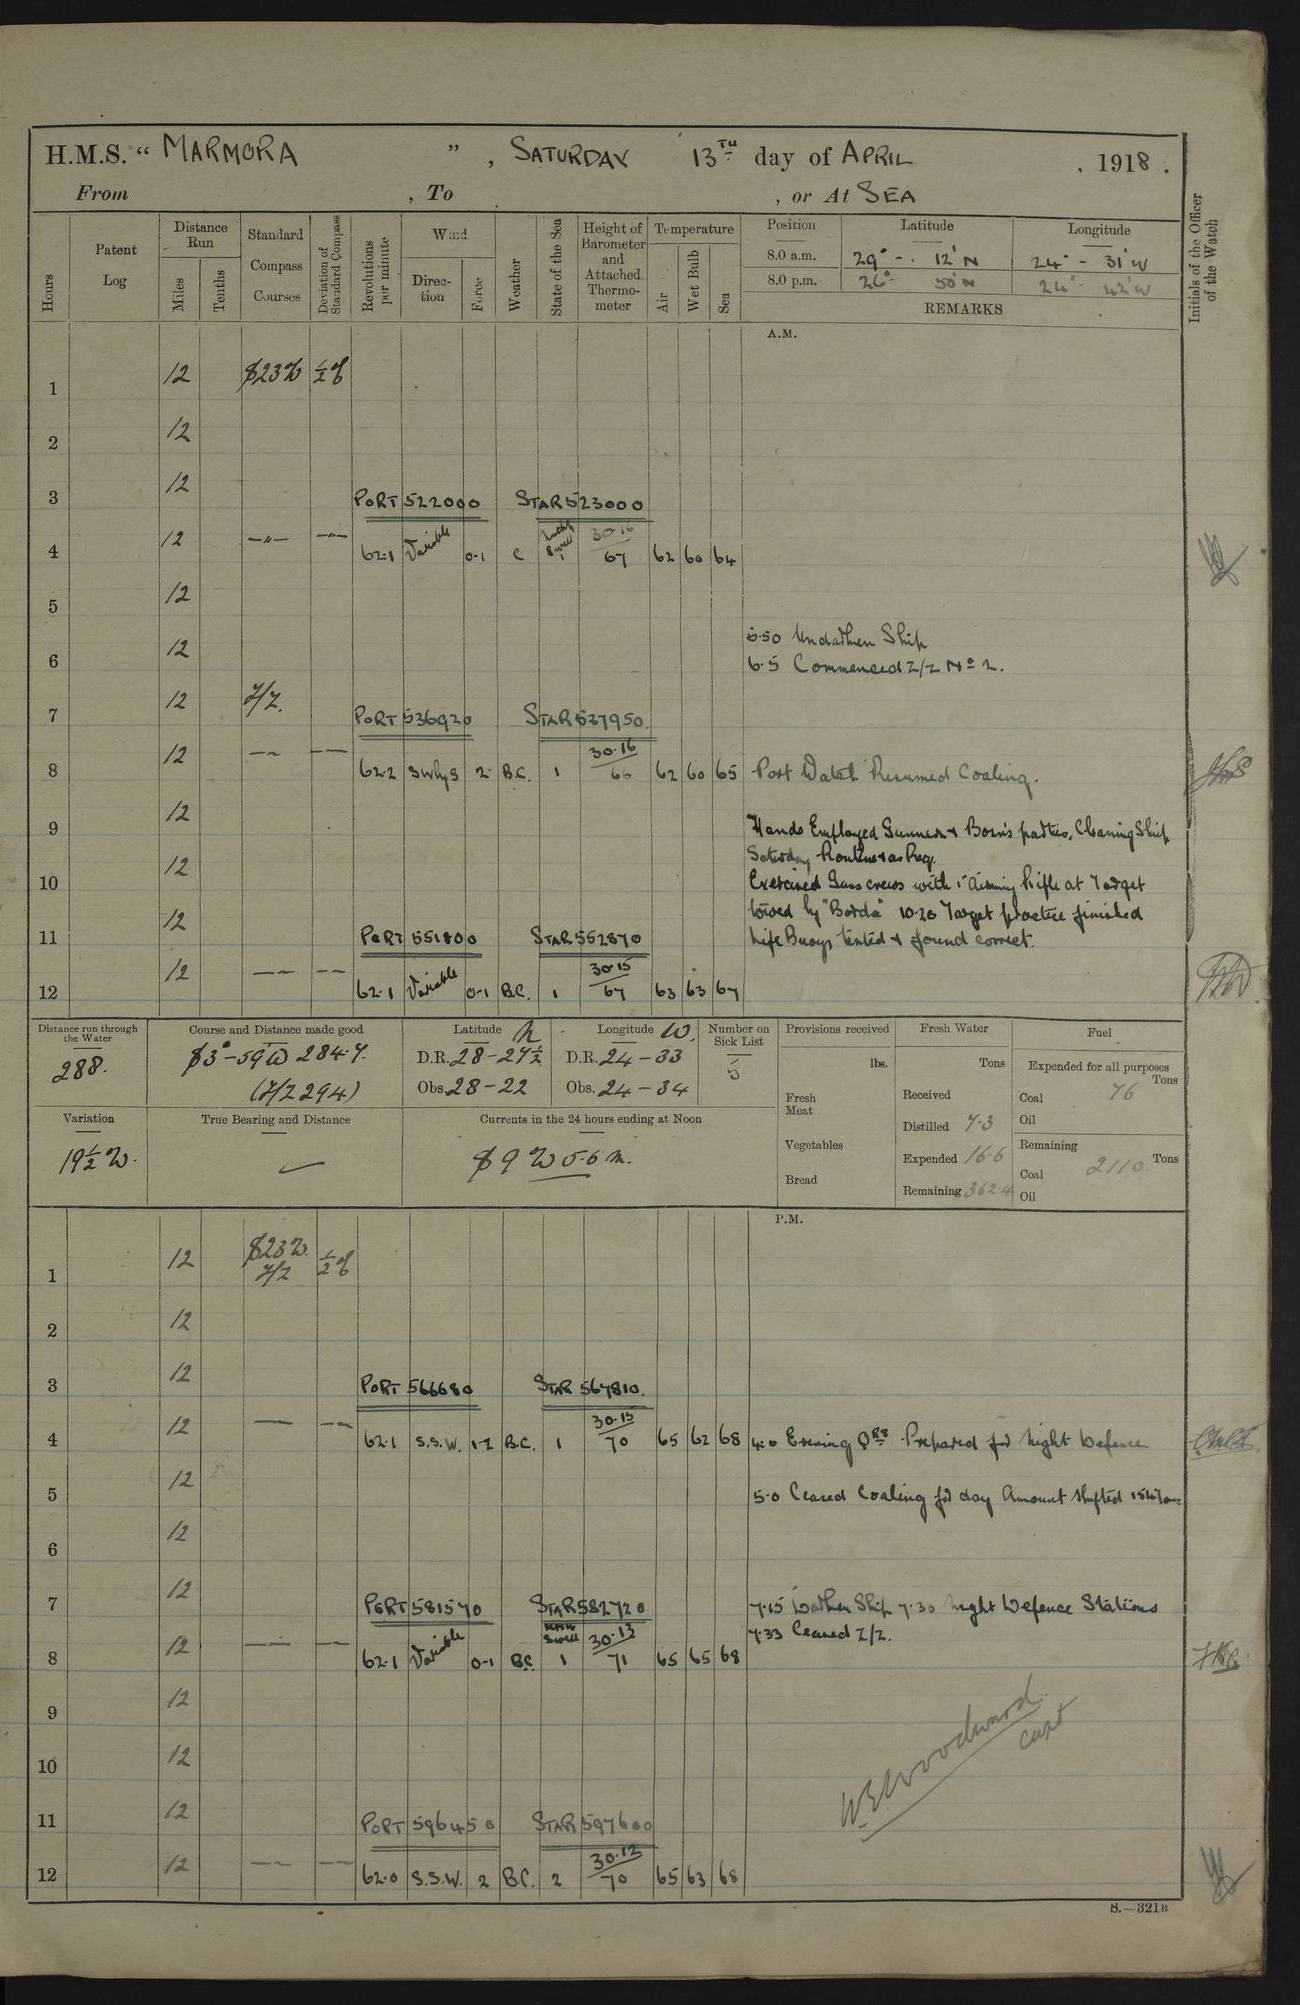 H.M.S. “ MARMORA ” , SATURDAY 13TH day of APRIL , 1918 .
From , To , or At SEA
Hours
Patent Log
Distance Run
Miles
Tenths
Standard Compass Courses
Deviation of Standard Compass
Revolutions per minute
Wind
Direction
Force
Weather
State of the Sea
Height of Barometer and Attached Thermometer
Temperature
Air
Wet Bulb
Sea
Position Latitude Longitude
8.0 a.m. 29° - 12' N 24° - 31' W
8.0 p.m. 26° 50' N 24° - 42' W
REMARKS
Initials of the Officer of the Watch
A.M.
1 12 S23W ½ E
2 12
3 12 PORT 522000 STAR 523000
4 12 —„— —„— 62.1 Variable 0-1 C Swell 1 30.16 67 62 60 64
5 12
6 12 5.50 Undarken Ship
6.5 Commenced Z/Z No 2.
7 12 Z/Z. PORT 536920 STAR 537950
8 12 —— —— 62.2 SWlyS 2 B.C. 1 30.16 66 62 60 65 Port Watch Resumed Coaling.
9 12 Hands Employed Gunner & Bosn's parties, Cleaning Ship
Saturday Routine & as Req.
10 12 Exercised Guns crews with 1" Aiming Rifle at Target
towed by "Borda" 10.20 Target practice finished
11 12 PORT 551800 STAR 552870 Life Buoys tested & found correct.
12 12 —— —— 62.1 Variable 0-1 B.C. 1 30.15 67 63 63 67
Distance run through the Water
288.
Course and Distance made good
S3°-59W 284.7.
(Z/Z 294)
Latitude N
D.R. 28-27½
Obs. 28-22
Longitude W.
D.R. 24-33
Obs. 24-34
Number on Sick List
5
Provisions received
lbs.
Fresh Meat
Vegetables
Bread
Fresh Water
Tons
Received
Distilled 7.3
Expended 16.6
Remaining 362.4
Fuel
Expended for all purposes
Tons
Coal 76
Oil
Remaining
Tons
Coal 2110
Oil
Variation
19½ W.
True Bearing and Distance
—
Currents in the 24 hours ending at Noon
S 9 W 5.6 m.
P.M.
1 12 S23W. Z/Z ½ E
2 12
3 12 PORT 566680 STAR 567810.
4 12 —— —— 62.1 S.S.W. 1-2 B.C. 1 30.15 70 65 62 68 4.0 Evening Qrs Prepared for Night Defence
5 12 5.0 Ceased Coaling for day Amount shifted 154 Tons
6 12
7 12 PORT 581570 STAR 582720 7.15 Darken Ship 7.30 Night Defence Stations
7.33 Ceased Z/Z.
8 12 —— —— 62.1 Variable 0-1 B.C. Swell 1 30.13 71 65 65 68
9 12
10 12
11 12 PORT 596450 STAR 597600
12 12 —— —— 62.0 S.S.W. 2 B.C. 2 30.12 70 65 63 68
W.E. Woodward
Capt
S.—321B